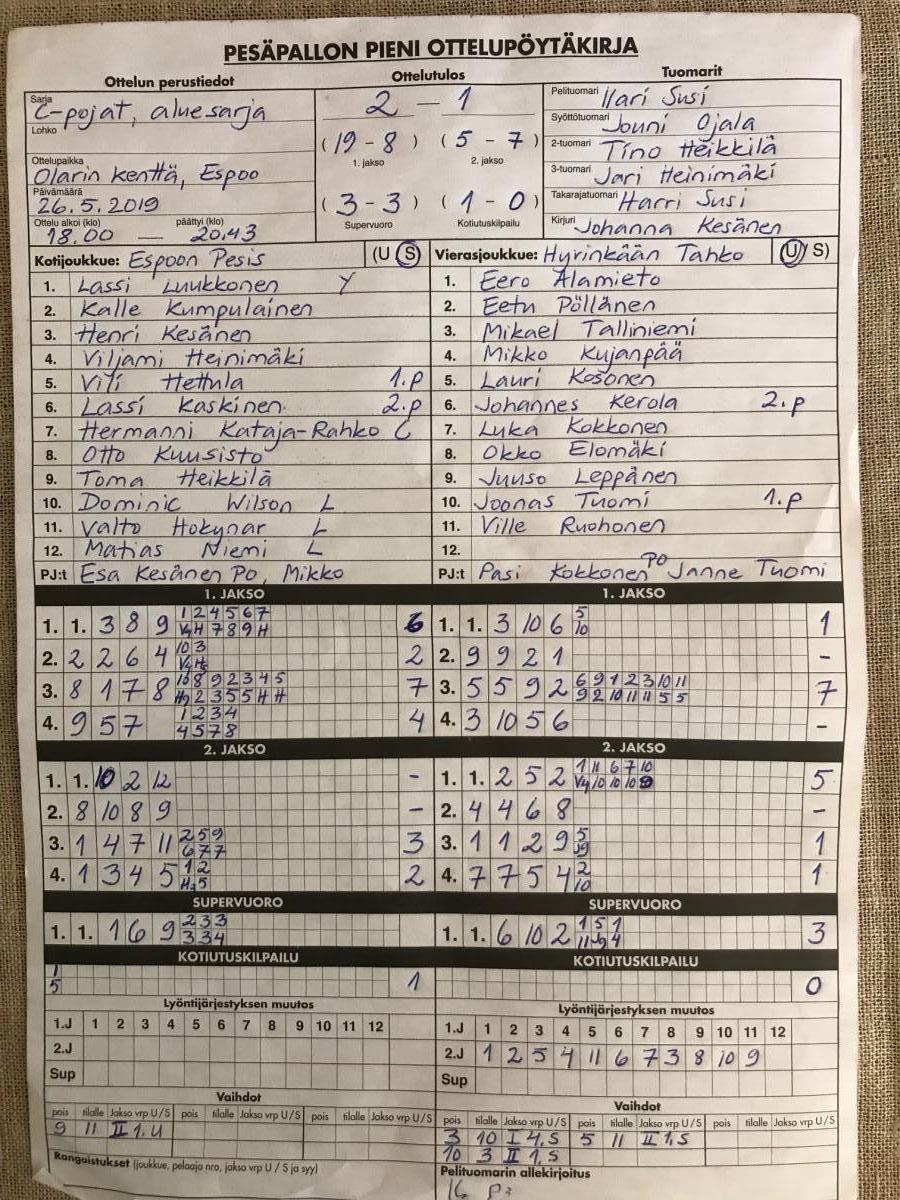 PESÄPALLON PIENI OTTELUPÖYTÄKIRJA
Ottelun perustiedot
Sarja C-pojat, aluesarja
Lohko
Ottelupaikka Olarin kenttä, Espoo
Päivämäärä 26.5.2019
Ottelu alkoi (klo) päättyi (klo)
18.00 — 20.43
Ottelutulos
2 — 1
(19 - 8) (5 - 7)
1. jakso 2. jakso
(3 - 3) (1 - 0)
Supervuoro Kotiutuskilpailu
Tuomarit
Pelituomari Harri Susi
Syöttötuomari Jouni Ojala
2-tuomari Tino Heikkilä
3-tuomari Jari Heinimäki
Takarajatuomari Harri Susi
Kirjuri Johanna Kesänen
Kotijoukkue: Espoon Pesis (U S)
1. Lassi Luukkonen Y
2. Kalle Kumpulainen
3. Henri Kesänen
4. Viljami Heinimäki
5. Vili Hettula 1.p
6. Lassi Kaskinen 2.p
7. Hermanni Kataja-Rahko C
8. Otto Kuusisto
9. Toma Heikkilä
10. Dominic Wilson L
11. Valto Hokynar L
12. Matias Niemi L
PJ:t Esa Kesänen PO, Mikko
Vierasjoukkue: Hyrinkään Tahko (U S)
1. Eero Alamieto
2. Eetu Pöllänen
3. Mikael Talliniemi
4. Mikko Kujanpää
5. Lauri Kosonen
6. Johannes Kerola 2.p
7. Luka Kokkonen
8. Okko Elomäki
9. Juuso Leppänen
10. Joonas Tuomi 1.p
11. Ville Ruohonen
12.
PJ:t Pasi Kokkonen PO Janne Tuomi
1. JAKSO
1. 1. 3 8 9 1 2 4 5 6 7 6
7 8 9 H
2. 2 2 6 4 10 3 2
3. 8 1 7 8 8 9 2 3 4 5 7
2 3 5 5 H H
4. 9 5 7 1 2 3 4 4
4 5 7 8
1. JAKSO
1. 1. 3 10 6 5 1
10
2. 9 9 2 1 -
3. 5 5 9 2 6 9 1 2 3 10 11 7
9 2 10 11 11 5 5
4. 3 10 5 6 -
2. JAKSO
1. 1. 10 2 12 -
2. 8 10 8 9 -
3. 1 4 7 11 2 5 9 3
6 7 7
4. 1 3 4 5 1 2 2
5
2. JAKSO
1. 1. 2 5 2 1 11 6 7 10 5
10 10 10 9
2. 4 4 6 8 -
3. 1 1 2 9 5 1
4. 7 7 5 4 2 1
10
SUPERVUORO
1. 1. 1 6 9 2 3 3
3 3 4
SUPERVUORO
1. 1. 6 10 2 1 5 1 3
11 4
KOTIUTUSKILPAILU
1 1
5
KOTIUTUSKILPAILU
0
Lyöntijärjestyksen muutos
1.J 1 2 3 4 5 6 7 8 9 10 11 12
2.J
Sup
Lyöntijärjestyksen muutos
1.J 1 2 3 4 5 6 7 8 9 10 11 12
2.J 1 2 5 4 11 6 7 3 8 10 9
Sup
Vaihdot
pois tilalle Jakso vrp U/S pois tilalle Jakso vrp U/S pois tilalle Jakso vrp U/S
9 11 II 1. U
Rangaistukset (joukkue, pelaaja nro, jakso vrp U / S ja syy)
Vaihdot
pois tilalle Jakso vrp U/S pois tilalle Jakso vrp U/S pois tilalle Jakso vrp U/S
3 10 I 4, S 5 11 II 1, S
10 3 II 1, S
Pelituomarin allekirjoitus